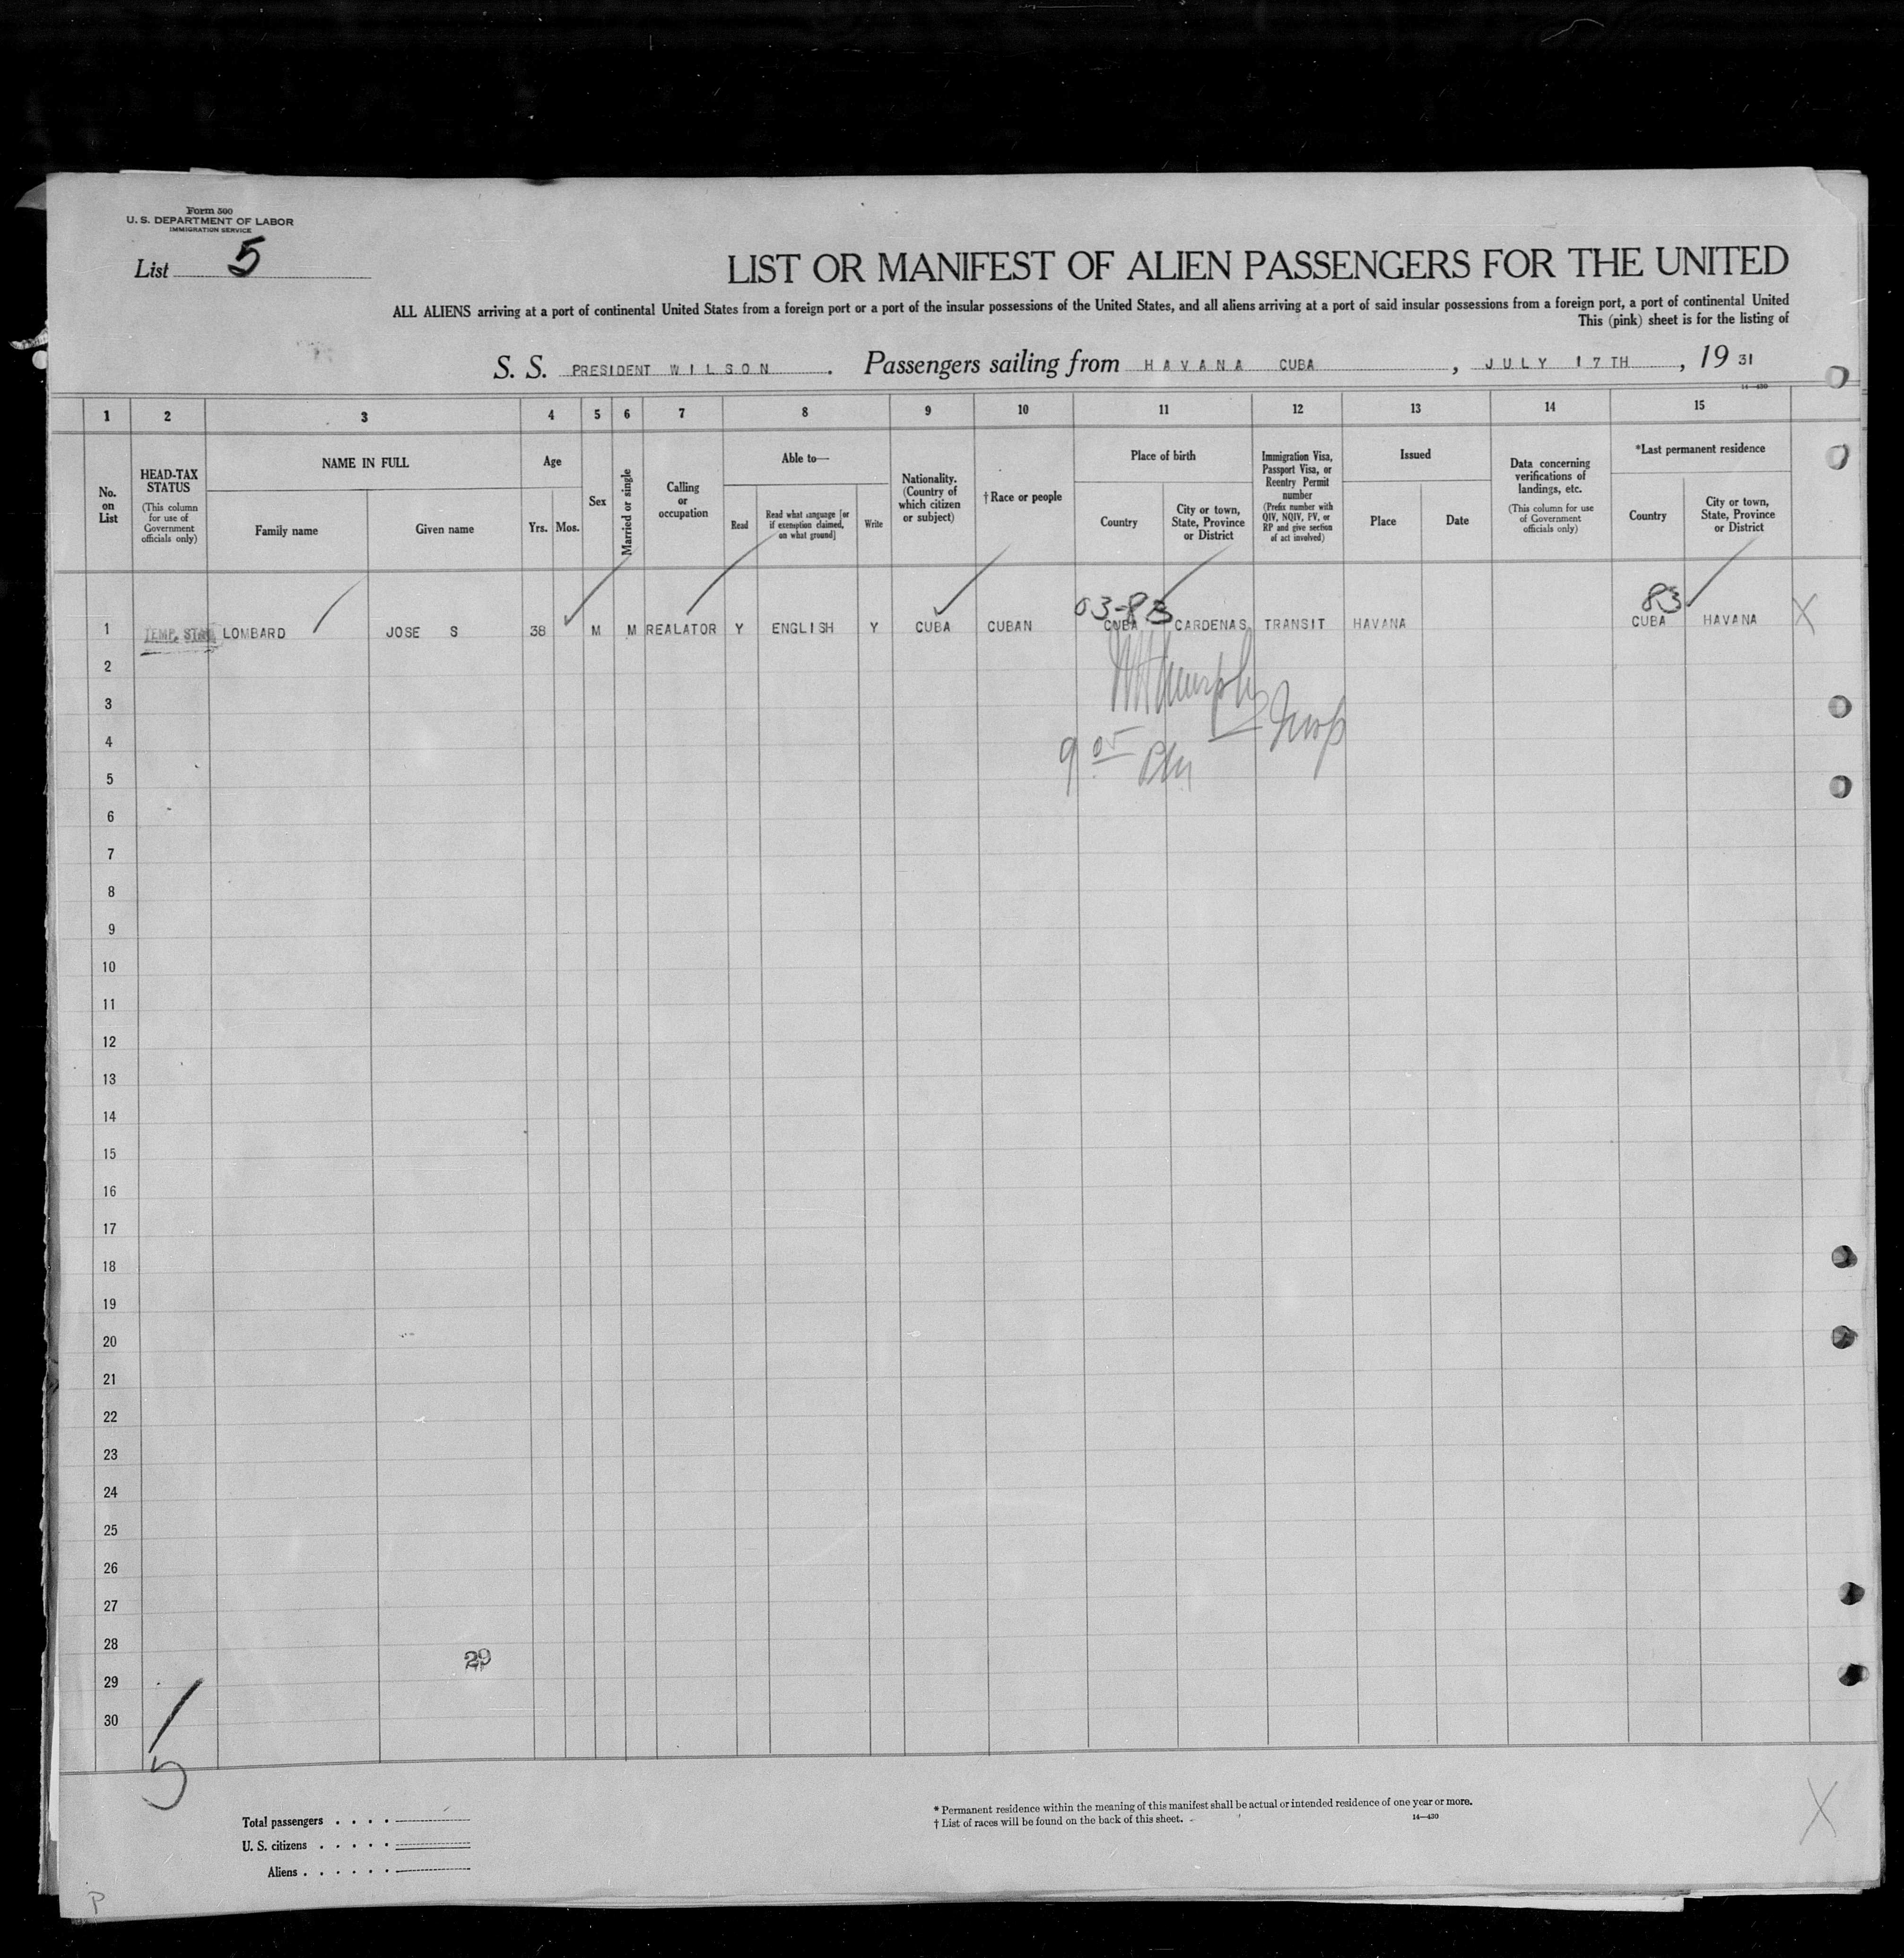 Form 500
U. S. DEPARTMENT OF LABOR
IMMIGRATION SERVICE
List 5
LIST OR MANIFEST OF ALIEN PASSENGERS FOR THE UNITED
ALL ALIENS arriving at a port of continental United States from a foreign port or a port of the insular possessions of the United States, and all aliens arriving at a port of said insular possessions from a foreign port, a port of continental United
This (pink) sheet is for the listing of
S. S. PRESIDENT WILSON. Passengers sailing from HAVANA CUBA, JULY 17TH, 1931
14—430
1 2 3 4 5 6 7 8 9 10 11 12 13 14 15
No. on List
HEAD-TAX STATUS
(This column for use of Government officials only)
NAME IN FULL
Family name
Given name
Age
Yrs.
Mos.
Sex
Married or single
Calling or occupation
Able to—
Read
Read what language [or if exemption claimed, on what ground]
Write
Nationality. (Country of which citizen or subject)
†Race or people
Place of birth
Country
City or town, State, Province or District
Immigration Visa, Passport Visa, or Reentry Permit number
(Prefix number with QIV, NQIV, PV, or RP and give section of act involved)
Issued
Place
Date
Data concerning verifications of landings, etc.
(This column for use of Government officials only)
*Last permanent residence
Country
City or town, State, Province or District
03-83 83
1 TEMP. STAY LOMBARD JOSE S 38 M M REALATOR Y ENGLISH Y CUBA CUBAN CUBA CARDENAS TRANSIT HAVANA CUBA HAVANA X
2
Murphy
3
Insp
4
9 05 PM
5
6
7
8
9
10
11
12
13
14
15
16
17
18
19
20
21
22
23
24
25
26
27
28
29
29
30
5
Total passengers . . . .
U. S. citizens . . . . .
Aliens . . . . . .
* Permanent residence within the meaning of this manifest shall be actual or intended residence of one year or more.
† List of races will be found on the back of this sheet.
14—430
X
P